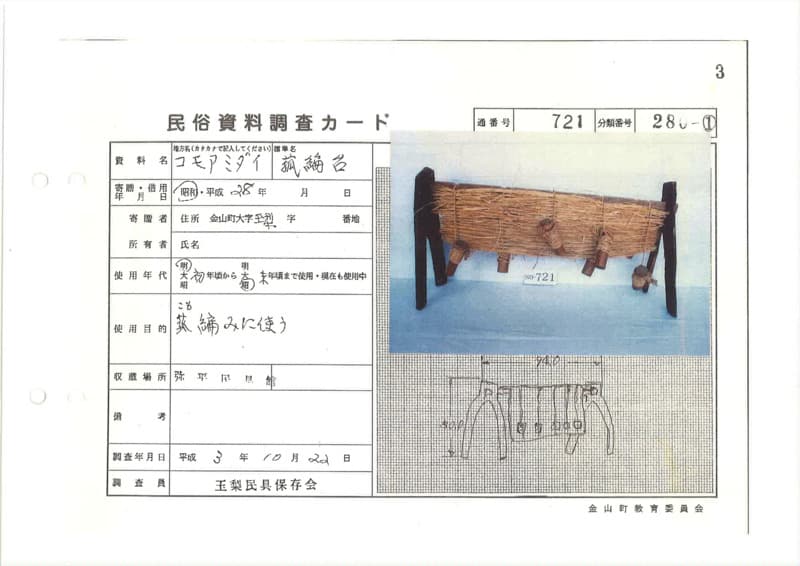 3
民俗資料調査カード
通番号 721 分類番号 286-①
資料名 地方名(カタカナで記入してください) コモアミダイ 標準名 菰編台
寄贈・借用年月日 昭和・平成 28年 月 日
寄贈者 住所 金山町大字玉梨 字 番地
所有者 氏名
使用年代 明大昭 初年頃から 明大昭 末年頃まで使用・現在も使用中
使用目的 こも 菰編みに使う
収蔵場所
備考
調査年月日 平成 3年 10月 22日
調査員 玉梨民具保存会
NO 721
94.0
50.0
金山町教育委員会